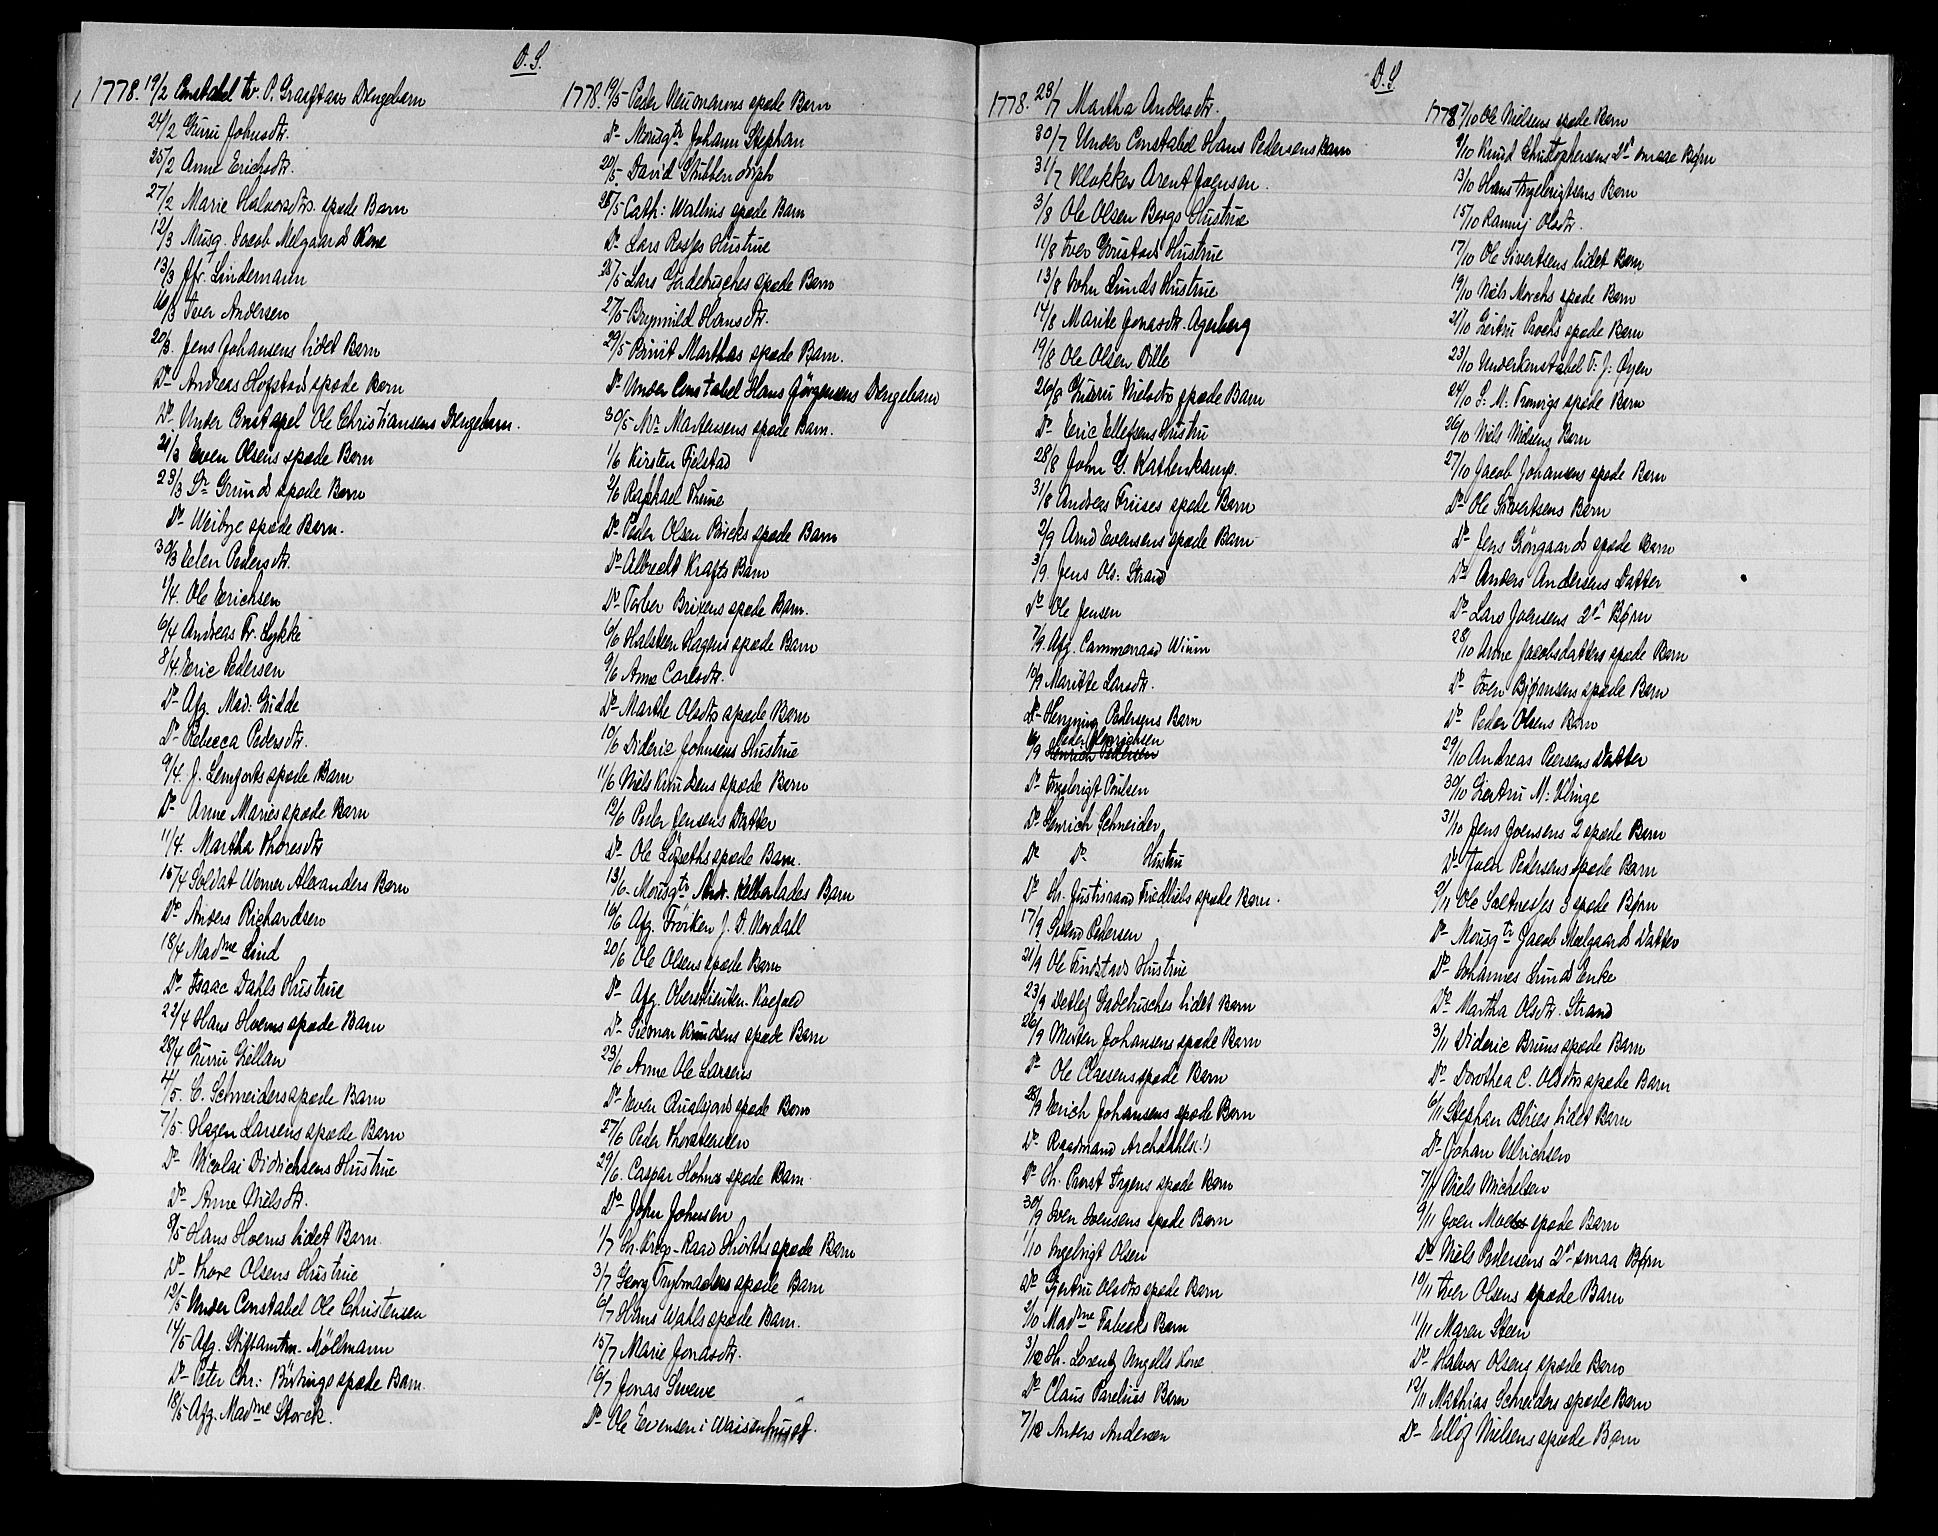 D. S.
1778. 19/2 Constabel P. Draftaas Drengebarn
24/2 Guru Johnsdtr.
25/2 Anne Erichsdtr.
27/2 Marie Halvorsdtrs. spæde Barn
12/3 Musq. Jacob Melgaards Kone
13/3 Jfr. Lindemann
16/3 Iver Andersen
20/3. Jens Johansens lidet Barn
Do Andreas Hofstads spæde Barn
Do Under Constapel Ole Christiansens Drengebarn.
21/3 Even Olsens spæde Barn
23/3 Sr Grunds spæde Barn
Do Weibye spæde Barn.
30/3 Elen Pedersdtr.
1/4. Ole Erichsen
6/4 Andreas Fr. Lykke
8/4. Eric Pedersen
Do Afg. Mad. Gidde
Do Rebecca Pedersdtr.
9/4. J. Lemforts spæde Barn
Do Anne Maries spæde Barn
11/4. Martha Thoresdtr
15/4 Soldat Werner Alexanders Barn
Do Anders Richardsen
18/4 Madme Lind
Do Isaac Dahls Hustrue
22/4 Hans Hoems spæde Barn
28/4 Guru Gjellan
4/5. C. Schneiders spæde Barn
7/5. Hagen Larsens spæde Barn
Do Nicolai Didrichsens Hustrue
Do Anne Nielsdtr.
8/5 Hans Hoems lidet Barn
Do Thore Olsens Hustrue
12/5 Under Constabel Ole Christensen
14/5 Afg. Stiftamtm. Möllmann
Do Peter Chr: Bürings spæde Barn.
18/5 Afg. Madme Storck.
1778. 19/5 Peder Neumanns spæde Barn
Do Mousqtr Johann Stephan
20/5. David Stubbendorph
25/5 Cath: Wallnis spæde Barn
Do Lars Rosses Hustrue
25/5 Lars Gadebusches spæde Barn
27/5 Brynnild Hansdtr.
29/5 Brüit Marthas spæde Barn.
Do Under Constabel Hans Jörgensens Drengebarn
30/5 Mr Martensens spæde Barn.
1/6 Kirsten Fjelstad
2/6 Raphael Thime
Do Peder Olsen Bircks spæde Barn
Do Albrecht Krafts Barn
Do Torber Brixens spæde Barn.
6/6 Halsten Hagens spæde Barn
9/6 Anne Carlsdtr.
Do Marthe Olsdtrs spæde Barn
10/6 Dideric Johnsens Hustrue
11/6 Niels Knudsens spæde Barn
12/6 Peder Jensens Datter
Do Ole Löseths spæde Barn.
13/6 Mousqtr Andr. Kellerlades Barn
16/6 Afg. Fröiken J. D. Nordall
20/6 Ole Olsens spæde Barn
Do Afg. Oberstlieuten. Koefoed
Do Sivert Knudsens spæde Barn
23/6 Anne Ole Larsens
Do Even Qualsjords spæde Barn
27/6 Peder Thorstensen
29/6. Caspar Hohns spæde Barn
Do John Johnsen
1/7 Hr. Krigs-Raad Hiorths spæde Barn
3/7 Georg Trybmachers spæde Barn
6/7 Hans Wahls spæde Barn.
15/7 Marie Jonasdtr.
16/7 Jonas Sweve
Do Ole Evensen i Waisenhuset.
D. S
1778. 28/7 Martha Andersdtr.
30/7 Under Constabel Hans Pedersens Barn
31/7 Klokker Arent Joensen.
3/8 Ole Olsen Bergs Hustrue
11/8 Iver Grustads Hustrue
13/8 John Lunds Hustrue
14/8 Marite Jonasdtr. Agerberg
19/8 Ole Olsen Dille
26/8 Guru Nielsdtrs spæde Barn
Do Eric Ellefsens Hustru
28/8 John G. Kathenkamp.
31/8 Andreas Friises spæde Barn
2/9 Arnd Evensens spæde Barn
3/9. Jens Ols: Strand
Do Ole Jensen
7/9. Afg. Cammerraad Wium
10/9 Maritte Larsdtr.
Do Henning Pedersens Barn
Peder Henrichsen
Do Ingebrigt Poulsen
Do Henrich Schneider
Do Do Hustru
Do Hr. Justisraad Friedliebs spæde Barn.
17/9 Svend Pedersen
21/9 Ole Findstads Hustrue
23/9 Detlef Gadebusches lidet Barn
26/9 Morten Johansens spæde Barn
Do Ole Claesens spæde Barn
28/9 Erich Johansens spæde Barn
Do Raadmand Archdahls (!)
Do Hr. Provst Irgens spæde Barn
30/9 Sven Svensens spæde Barn
1/10 Ingebrigt Olsen
Do Gjertru Olsdtrs spæde Barn
2/10 Madme Tabecks Barn
3/10 Hr. Lorentz Angells Kone
Do Claus Parelius Barn
7/10 Anders Andersen
1778 7/10 Ole Nielsens spæde Barn
9/10 Knud Christophersens 2de smaae Børn
13/10 Hans Ingebrigtsens Barn
15/10 Ranny Olsdtr.
17/10 Ole Sivertsens lidet Barn
19/10 Niels Morchs spæde Barn
21/10 Giertru Procks spæde Barn
23/10 Underkonstabel T: J: Øyen
24/10 S. M. Tronvigs spæde Barn
26/10 Niels Nielsens Barn
27/10 Jacob Johansens spæde Barn
Do Ole Sivertsens Barn
Do Jens Gröngaards spæde Barn
Do Anders Andersens Datter
Do Lars Joensens 2de Børn
28/10 Arne Jacobsdatters spæde Barn
Do Iver Bjørnsens spæde Barn
Do Peder Olsens Barn
29/10 Andreas Peersens Datter
30/10 Giertru M: Klinge
31/10 Jens Joensens 2 spæde Børn
Do Iver Pedersens spæde Barn
2/11 Ole Saltnesses 3 spæde Børn
Do Mousqtr Jacob Melgaards Datter
Do Johannes Lunds Enke
Do Martha Olsdtr. Strand
3/11 Dideric Bruns spæde Barn
Do Dorothea C. Olsdtrs spæde Barn
6/11 Stephan Blies lidet Barn
Do Johan Ulrichsen
7/11 Niels Michelsen
9/11 Joen Moe spæde Barn
Do Niels Pedersens 2de smaa Børn
10/11 Iver Olsens spæde Barn
11/11 Maren Steen
Do Halvor Olsens spæde Barn
12/11 Mathias Schreiders spæde Barn
Do Ellef Nielsens spæde Barn